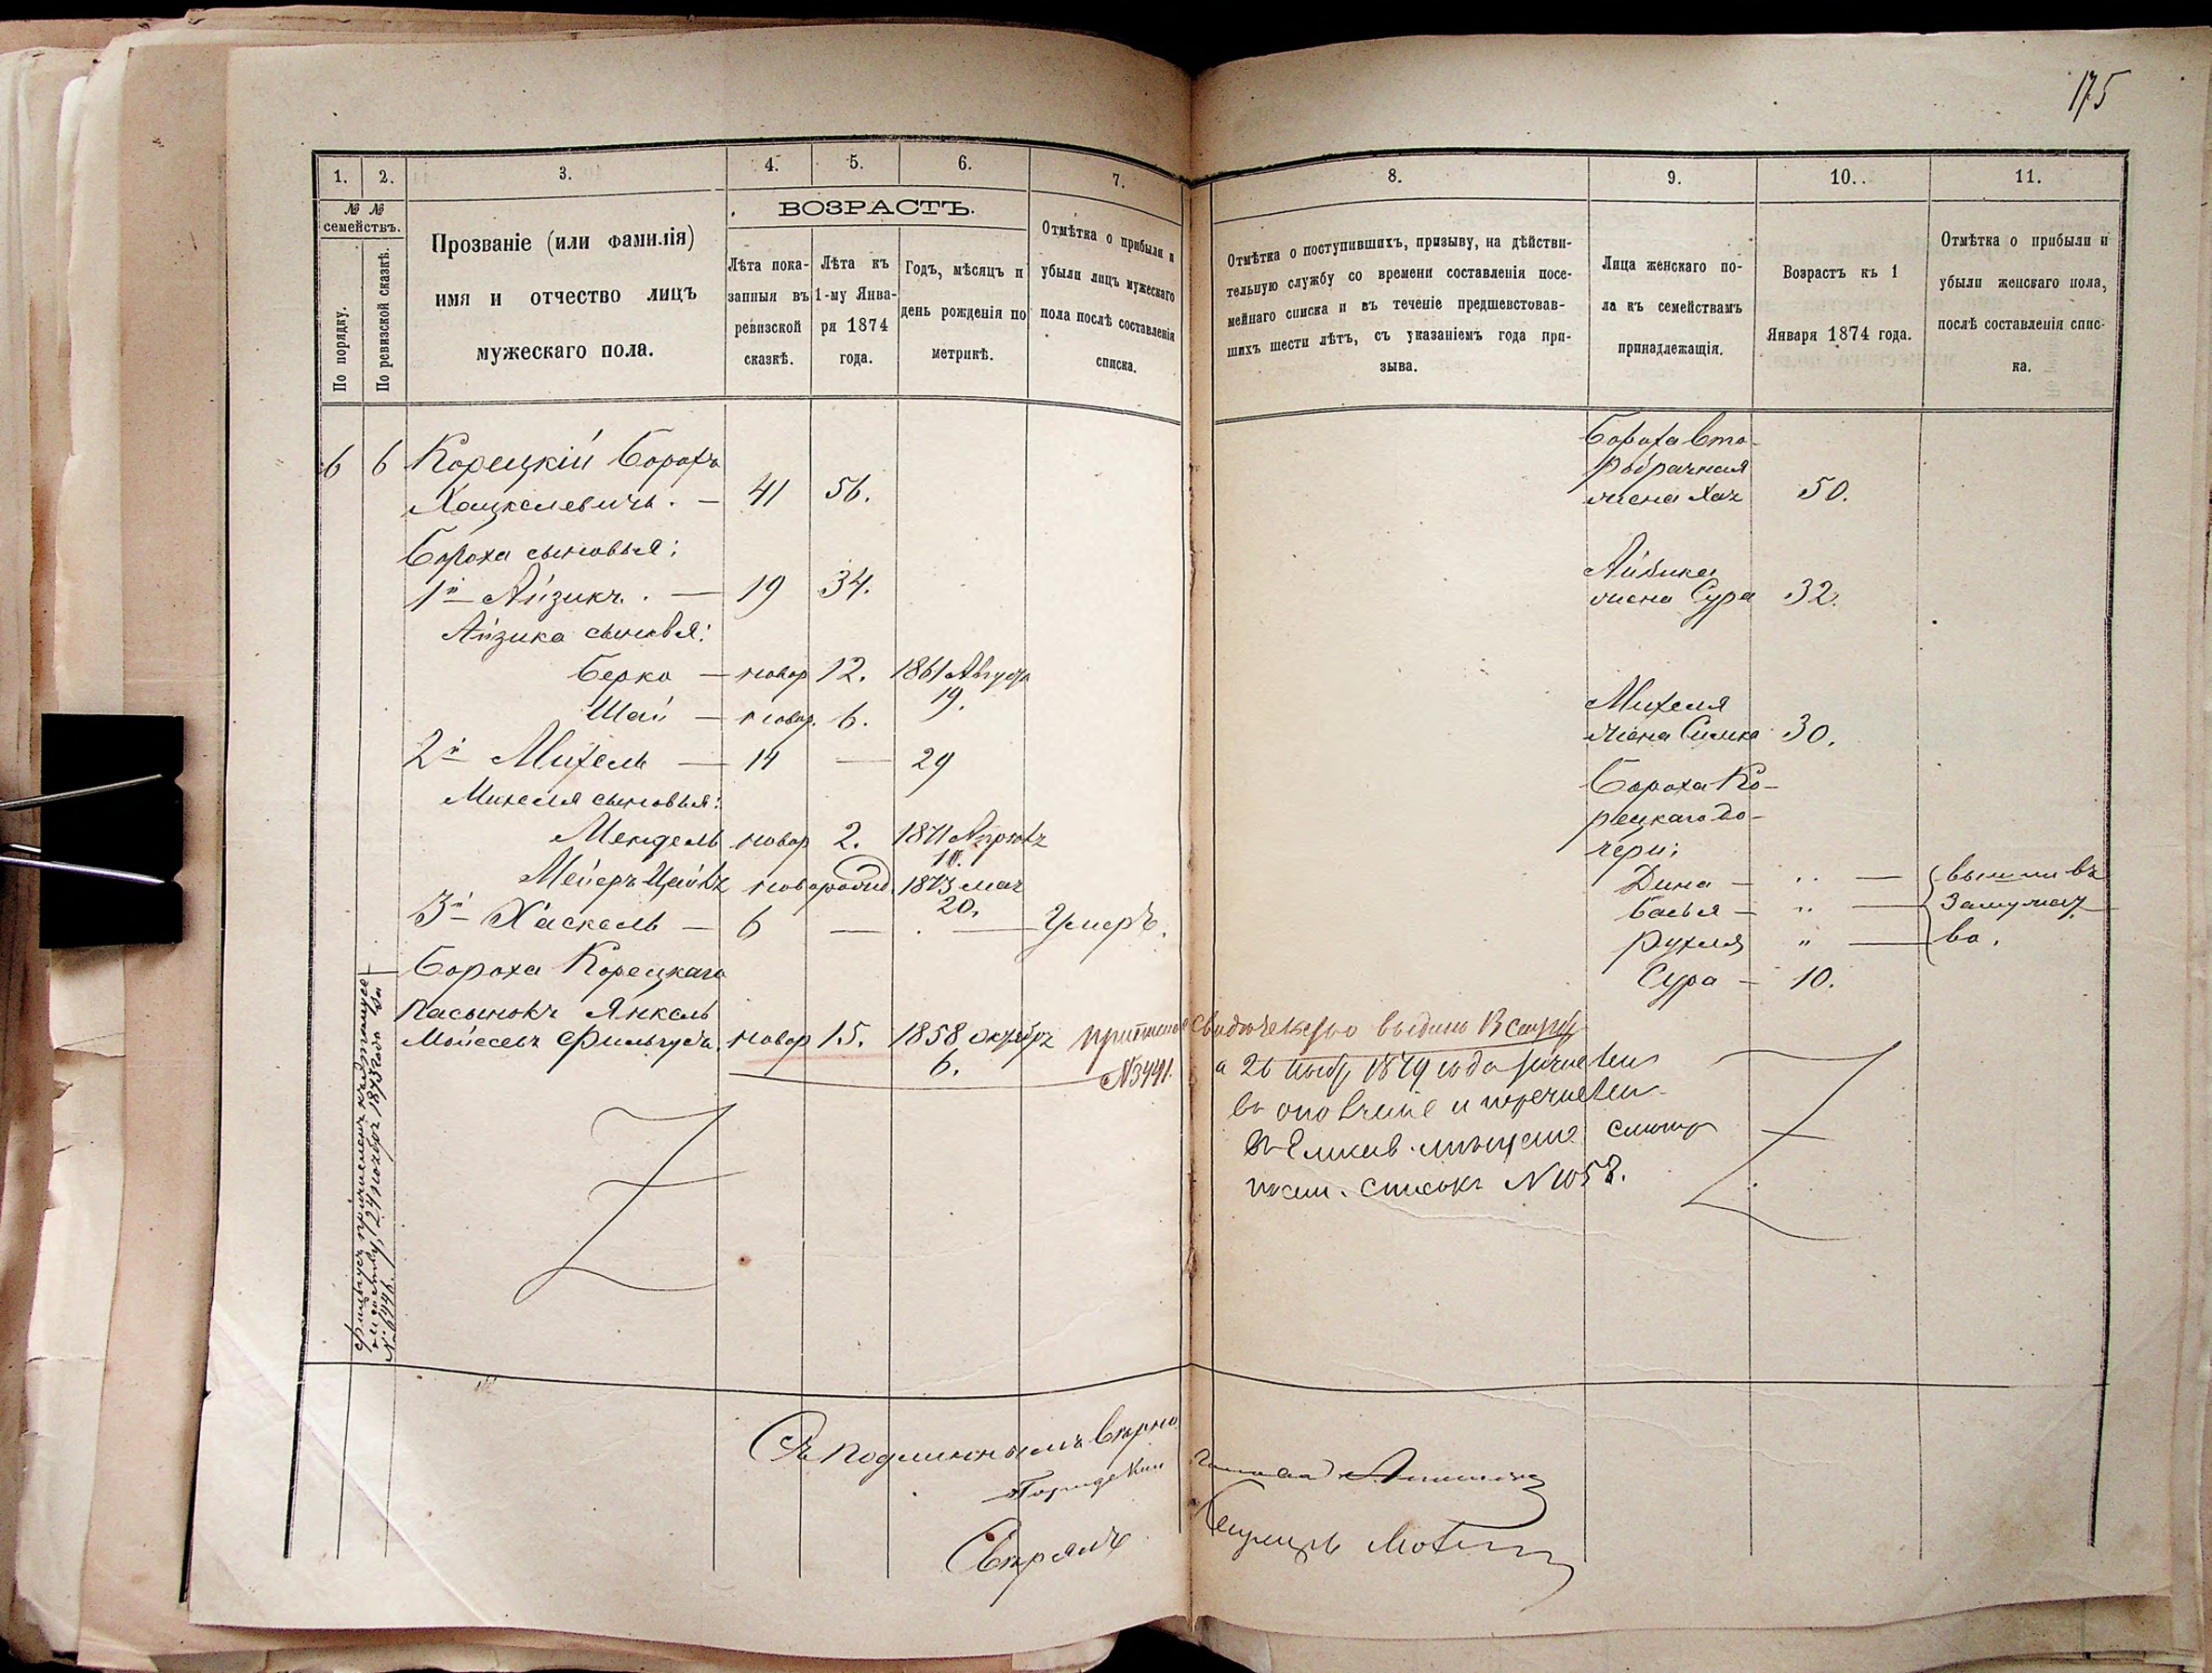 175
1. 2. 3. 4. 5. 6. 7.
№ № семействъ.
По порядку.
По ревизской сказкѣ.
Прозваніе (или фамилія)
имя и отчество лицъ
мужескаго пола.
ВОЗРАСТЪ.
Лѣта пока-
занныя въ
ревизской
сказкѣ.
Лѣта къ
1-му Янва-
ря 1874
года.
Годъ, мѣсяцъ и
день рожденія по
метрикѣ.
Отмѣтка о прибыли и
убыли лицъ мужескаго
пола послѣ составленія
списка.
6 6 Корецкій Борохъ
Хацкелевичъ. — 41 56.
Бороха сыновья:
1й Айзикъ. — 19 34.
Айзика сыновья:
Берко — новор 12. 1861 Августа
19.
Шай — новор. 6.
2й Михель — 14 — 29
Михеля сыновья:
Мендель новор 2. 1871 Апрѣль
10.
Мейеръ новорожд. 1873 мая
20.
3й Хаскель — 6 — Умеръ.
Бороха Корецкаго
пасынокъ Янкель
Мойсеевъ новор 15. 1858 октября
6.
№3441.
24 ноября 1875 года за
№6946.
Съ подлиннымъ вѣрно
8. 9. 10. 11.
Отмѣтка о поступившихъ, призыву, на дѣйстви-
тельную службу со времени составленія посе-
мейнаго списка и въ теченіе предшевстовав-
шихъ шести лѣтъ, съ указаніемъ года при-
зыва.
Лица женскаго по-
ла къ семействамъ
принадлежащія.
Возрастъ къ 1
Января 1874 года.
Отмѣтка о прибыли и
убыли женскаго пола,
послѣ составленія спис-
ка.
Бороха вто-
робрачная
жена Хая 50.
Айзика
жена Сура 32.
Михеля
жена Симка 30.
Бороха Ко-
рецкаго до-
чери:
Дина — " — вышли въ
Басья — " — замужест
Рухля " — во.
Сура — 10.
свидѣтельство выдано
1879 года зачислен
въ ополченіе и перечислен
посем. списокъ №1058.